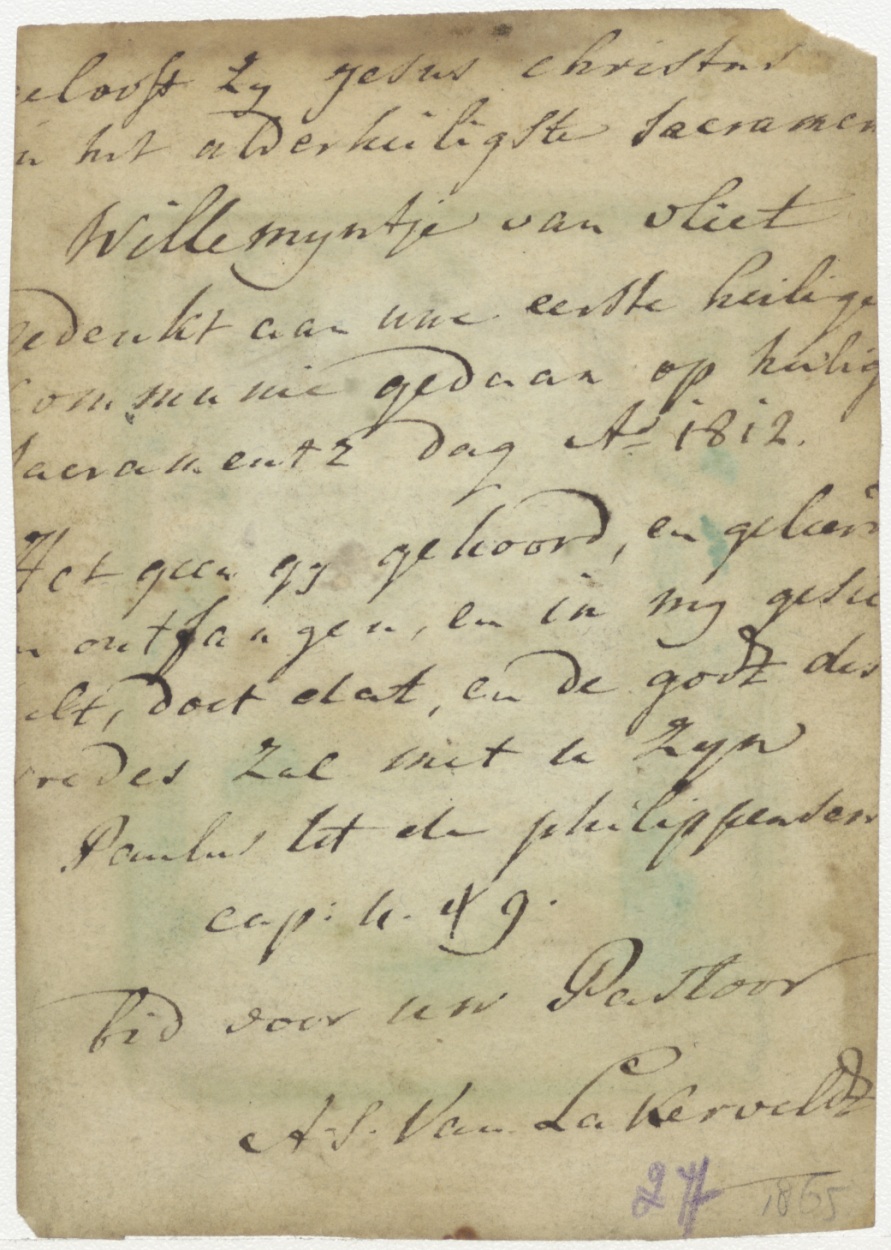 elooft Zy Jesus christus
in het alderheiligste Sacramen
Willemyntje van vliet
gedenkt aan uwe eerste heilige
Communie gedaan op heilig
Sacramentz dag Ao 1812.
Het geen gy gehoord, en geleerd
en ontfangen, en in my gesie
elt, doet dat, en de godt des
vredes zal met u Zyn
Paulus tot de philippensen
cap: 4. ℣ 9.
bid voor uw Pastoor
A. S. Van Lakerveldt
27 1865